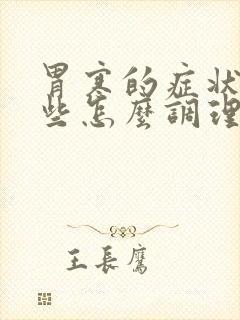 胃寒的症狀
些怎麼調理
王長鷹